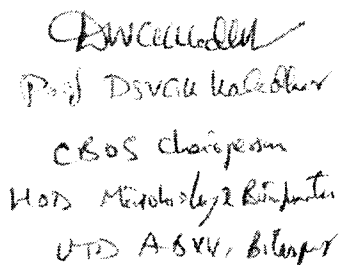 Prof DSVGK Kaladhar
CBOS Chairperson
HOD Microbiology & Bioinformatics
UTD ABVV, Bilaspur